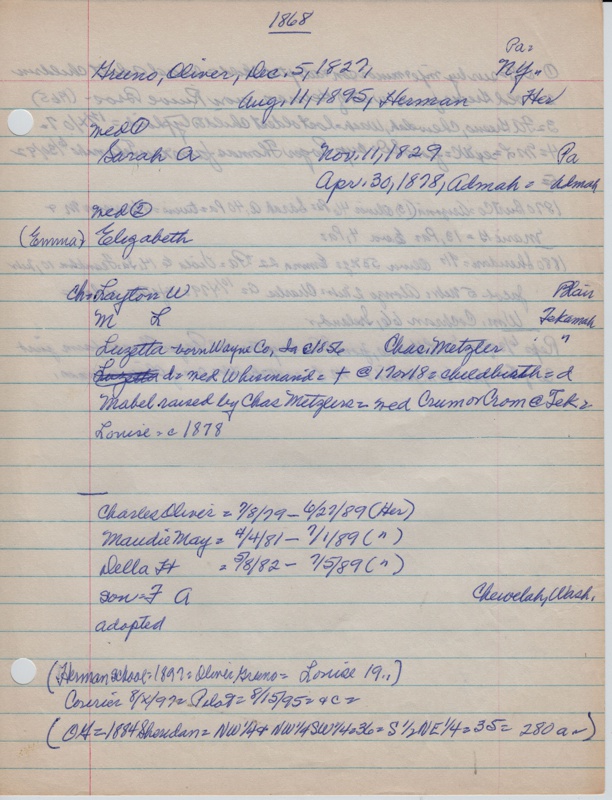 1868
Pa=
Gruno, Oliver, Dec. 5, 1827, NY. "
Aug. 11, 1895, Herman Her
med ①
Sarah A Nov. 11, 1829 Pa
Apr. 30, 1878, Admah = Admah
med ②
(Emma) Elizabeth
Ch = Layton W Blair
M L Tekamah
Luzetta - born Wayne Co, Ia c1856 Chas. Metzler "
Luzetta d = med Whisinand = + @ 17 or 18 = childbirth = d
Mabel raised by Chas Metzlers = med Crum or Crom @ Tek =
Louise = c 1878
Charles Oliver = 7/8/79 - 6/27/89 (Her)
Maudie May = 4/4/81 - 7/1/89 (")
Della H = 5/8/82 - 7/5/89 (")
son = F A Chewelah, Wash.
adopted
(Herman school = 1897 = Oliver Gruno = Louise 19..)
Courier 8/x/97 = Pilot = 8/15/95 = + c =
(OH = 1884 Sheridan = NW 1/4 + NW 1/4 SW 1/4 = 36 = S 1/2 NE 1/4 = 35 = 280 a ~)